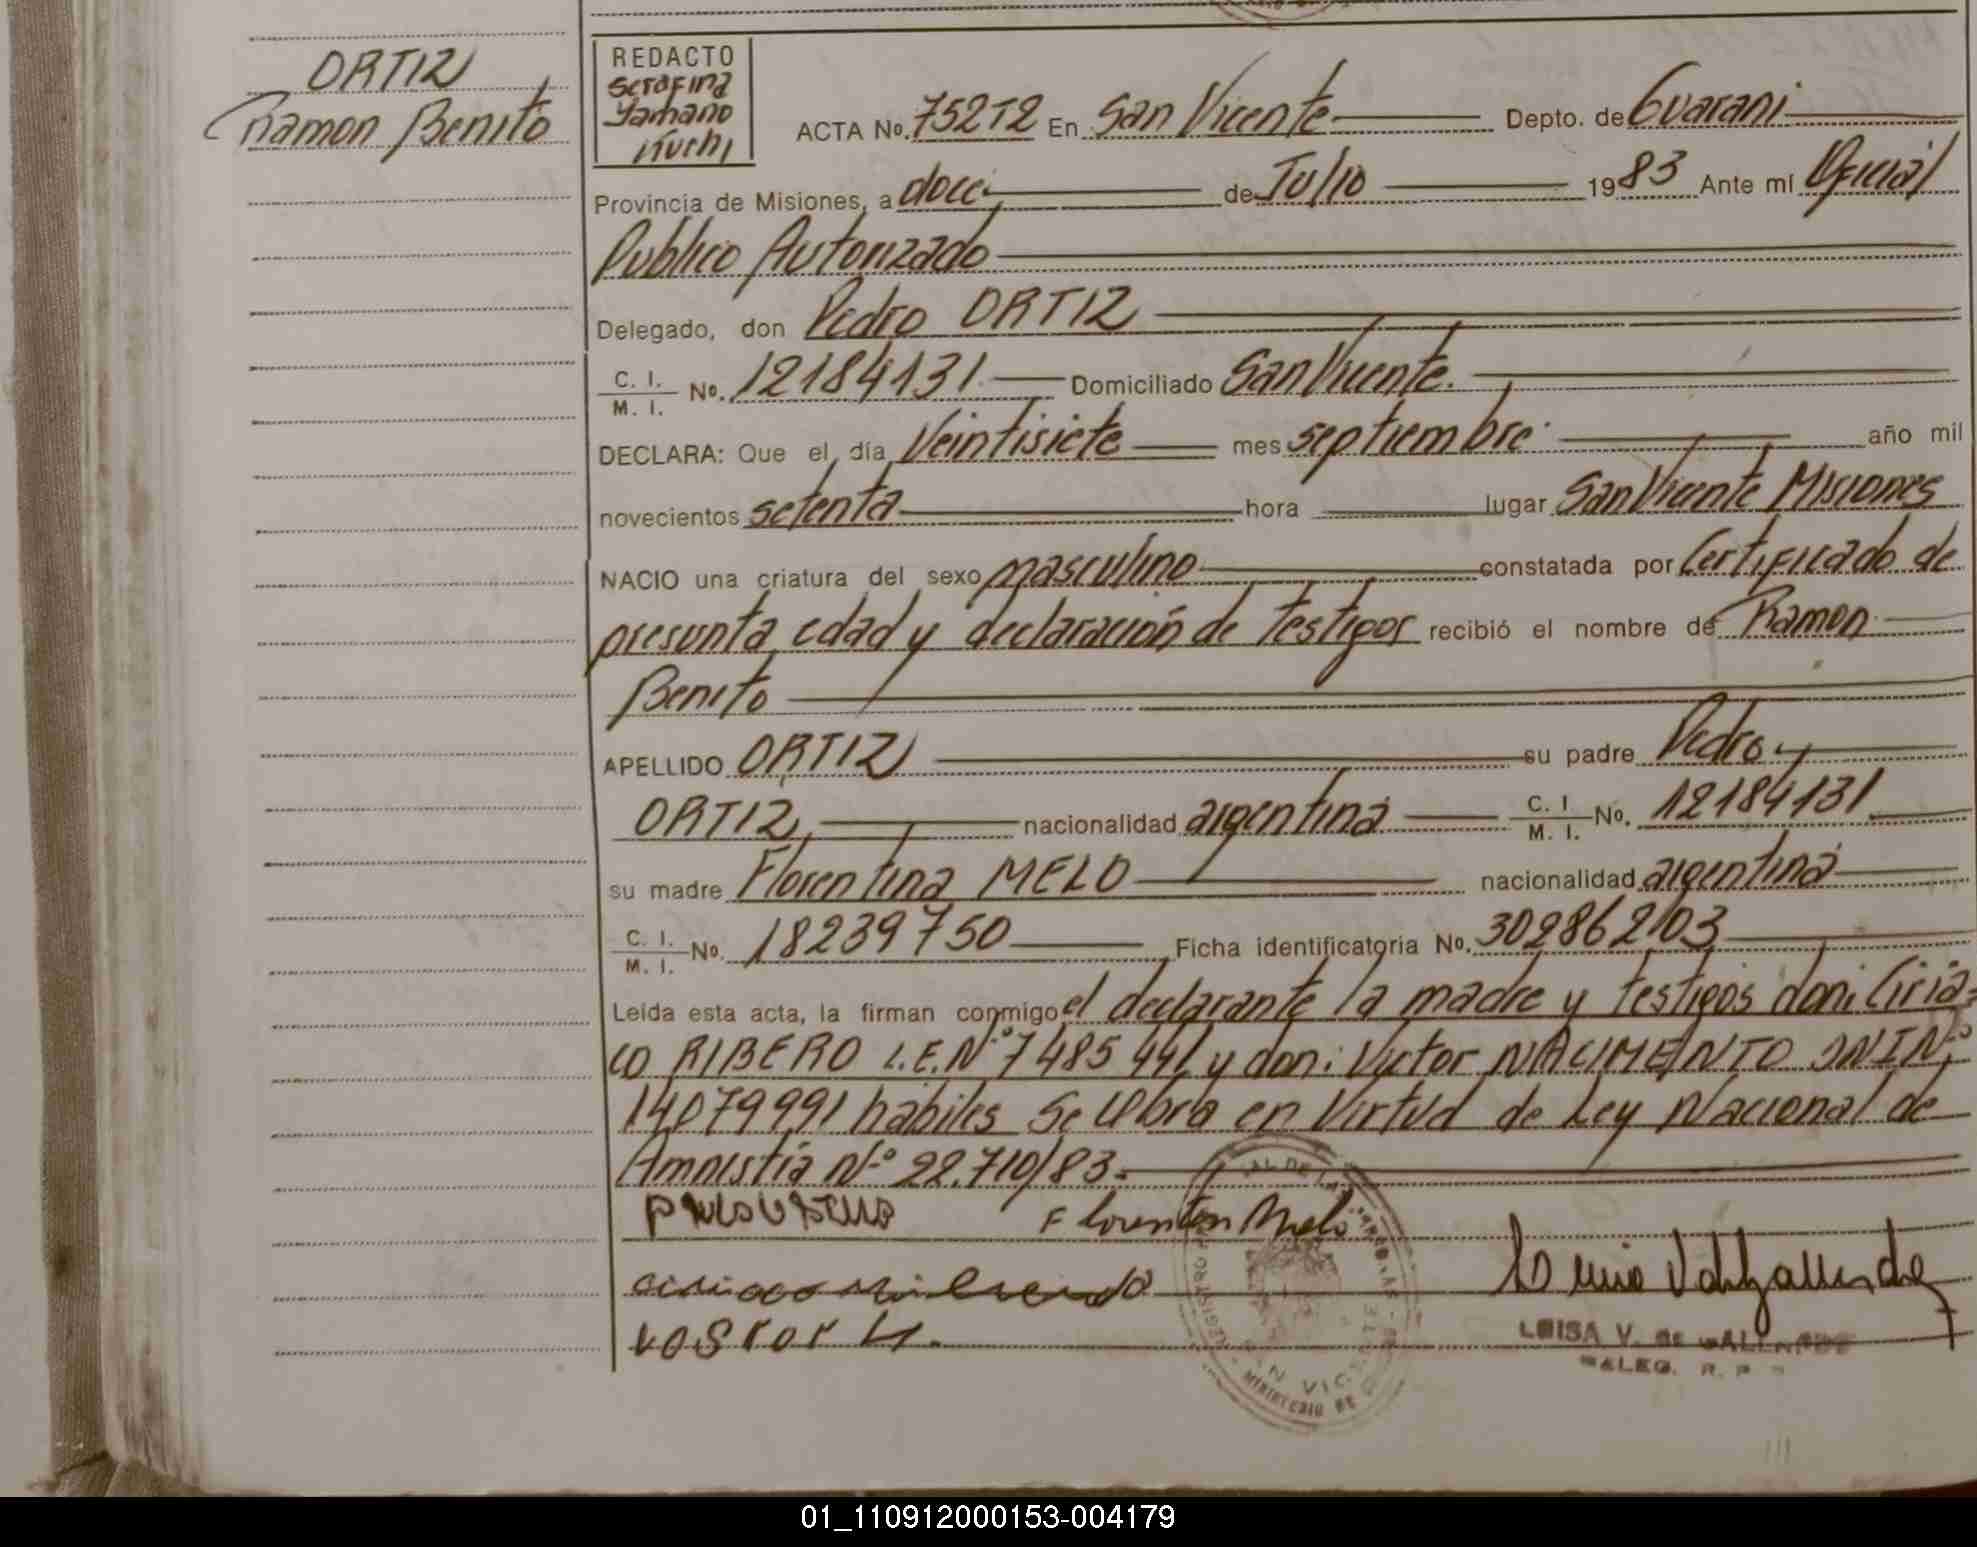 ORTIZ
Ramon Benito
REDACTO
Serafina
Yamano
Kuchi
ACTA No. 752T2 En San Vicente Depto. de Guarani
Provincia de Misiones, a doce de Julio 1983 Ante mí Oficial
Publico Autorizado
Delegado, don Pedro ORTIZ
C. I. M. I. No. 12184131 Domiciliado San Vicente.
DECLARA: Que el día Veintisiete mes septiembre año mil
novecientos setenta hora lugar San Vicente Misiones
NACIO una criatura del sexo masculino constatada por Certificado de
presunta edad y declaración de testigos recibió el nombre de Ramon
Benito
APELLIDO ORTIZ su padre Pedro
ORTIZ, nacionalidad argentina C. I. M. I. No. 12184131
su madre Florentina MELO nacionalidad argentina
C. I. M. I. No. 18239750 Ficha identificatoria No. 302862103
Leída esta acta, la firman conmigo el declarante la madre y testigos don: Ciria=
co RIBERO L.E.Nº 7485441 y don: Victor NACIMENTO DNI Nº
14079991 habiles Se labra en Virtud de Ley Nacional de
Amnistia Nº 22.710/83.
Florentin Melo
LUISA V. DE GALLARDO
DELEG. R. P.
MINISTERIO DE
01_110912000153-004179